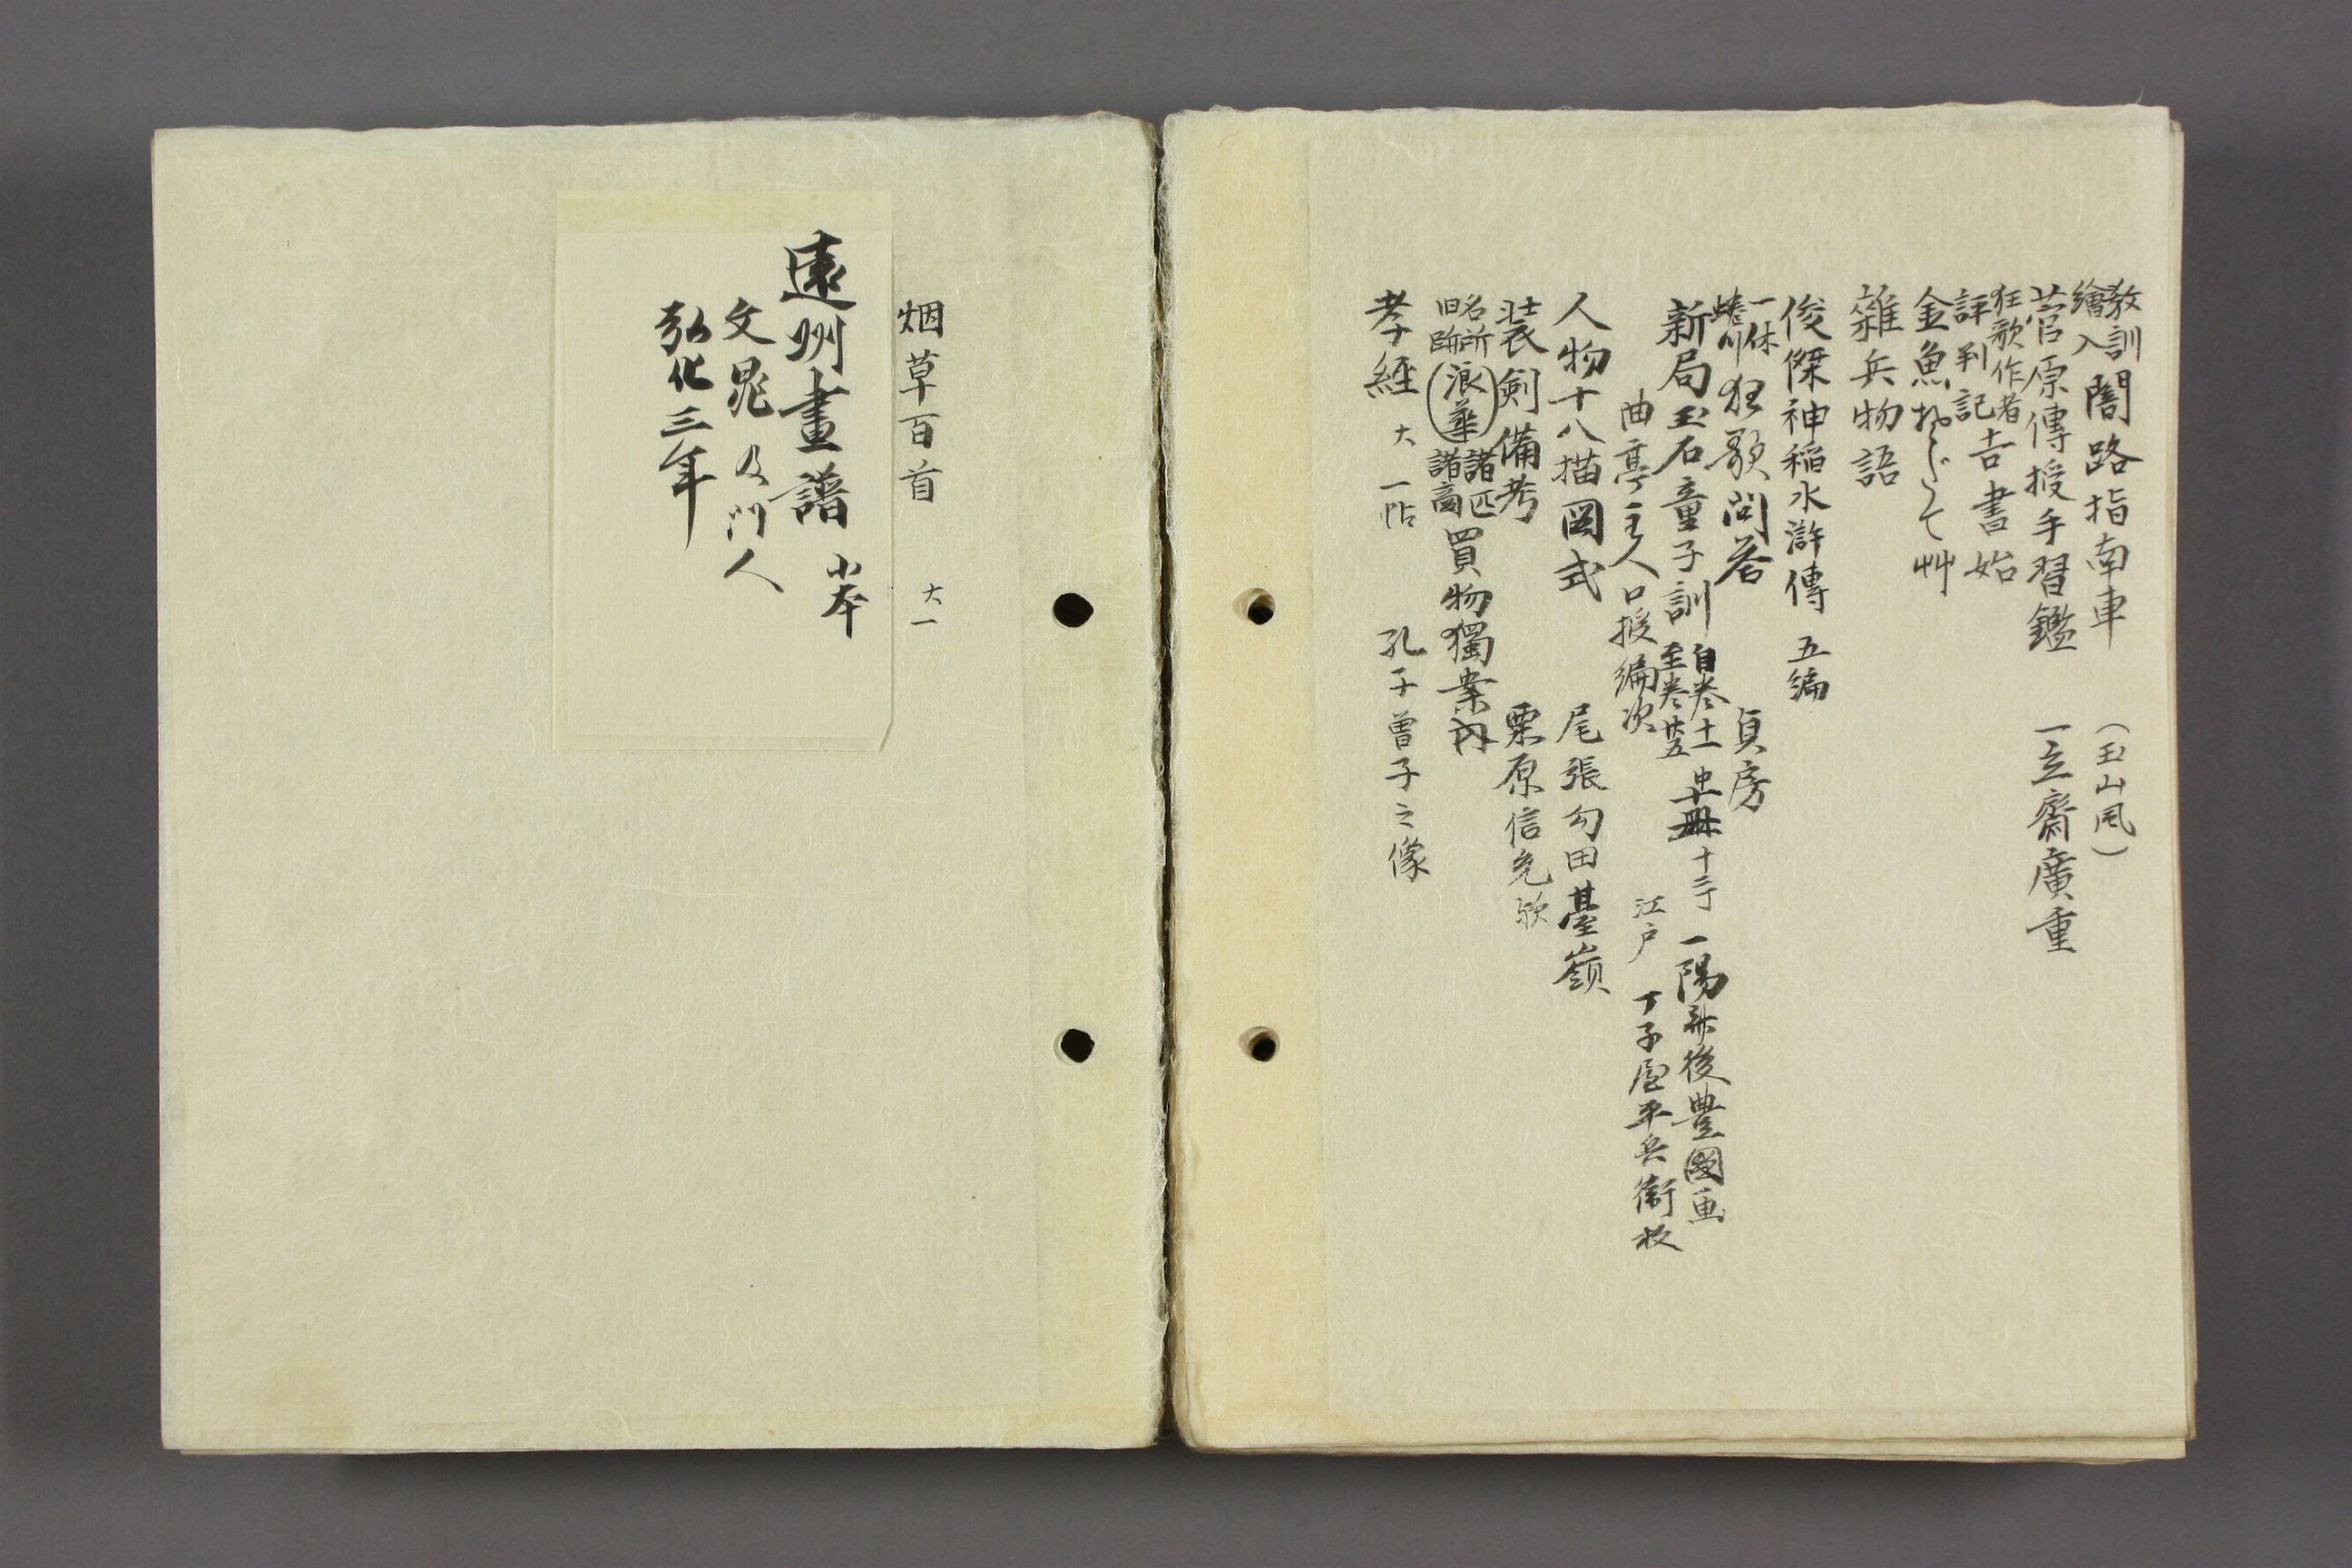 教訓繪入 闇路指南車 (玉山風)
菅原傳授手習鑑 一立齋廣重
狂歌作者評判記 吉書始
金魚そだて艸
雜兵物語
俊傑神稲水滸傳 五編
一休蜷川 狂歌問荅 貞房
新局玉石童子訓 自巻十一至巻廿五 一陽齋後豊國画
曲亭主人口授編次 江戸 丁子屋平兵衛板
人物十八描図式 尾張勾田臺嶺
装剣備考 栗原信充歟
名所旧跡 (浪華) 諸匠諸商 買物獨案内
孝經 大 一帖 孔子曽子之像
烟草百首 大一
遠州畫譜 小本
文晁及門人
弘化三年